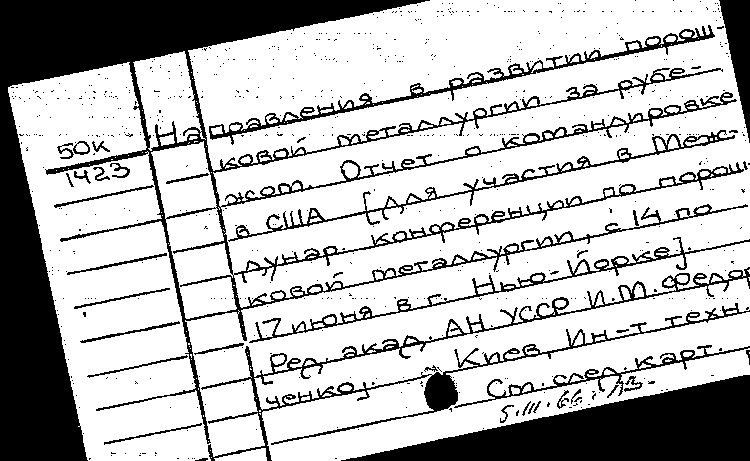 50К
1423
Направления в развитии порош-
ковой металлургии за рубе-
жом. Отчет о командировке
в США [для участия в Меж-
дунар. конференции по порош-
ковой металлургии, с 14 по
17 июня в г. Нью-Йорке].
[Ред. акад. АН УССР И.М. Федор
ченко]. Киев, Ин-т техн.
См. след. карт.
5.III.66г.